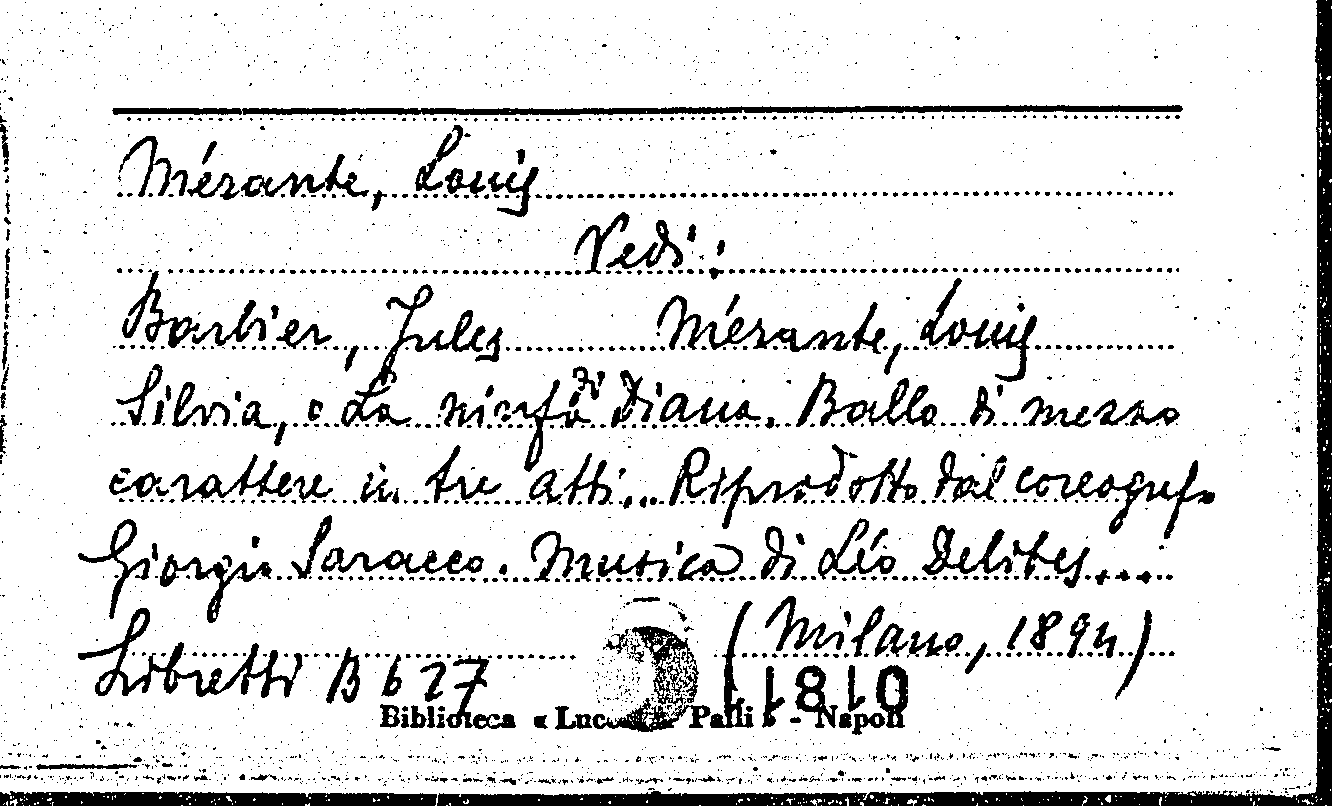 Mérante, Louis
Vedi:
Barbier, Jules Mérante, Louis
Silvia, o La ninfa di Diana. Ballo di mezzo
carattere in tre atti... Riprodotto dal coreografo
Giorgio Saracco. Musica di Léo Delibes...
(Milano, 1894)
Libretti B 627
01811
Biblioteca « Lucchesi Palli » - Napoli